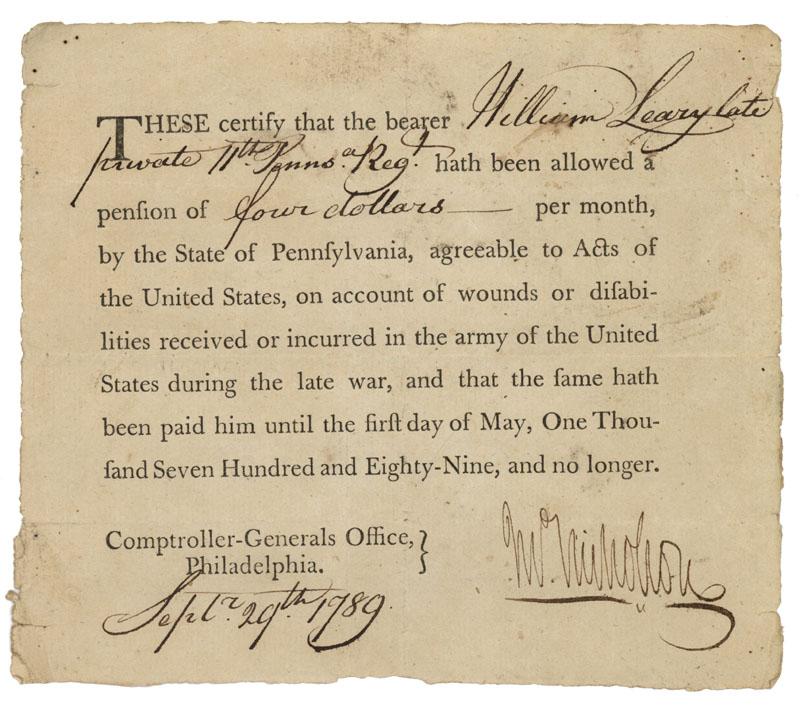 THESE certify that the bearer William Leary late
private 11th Pennsa. Regt. hath been allowed a
penſion of four dollars — per month,
by the State of Pennſylvania, agreeable to Acts of
the United States, on account of wounds or diſabi-
lities received or incurred in the army of the United
States during the late war, and that the ſame hath
been paid him until the firſt day of May, One Thou-
ſand Seven Hundred and Eighty-Nine, and no longer.
Comptroller-Generals Office, }
Philadelphia.
Septr. 29th 1789.
Jno. Nicholson